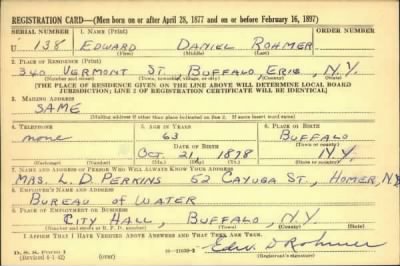 REGISTRATION CARD—(Men born on or after April 28, 1877 and on or before February 16, 1897)
SERIAL NUMBER 1. NAME (Print) ORDER NUMBER
U 138 EDWARD DANIEL ROHMER
(First) (Middle) (Last)
2. PLACE OF RESIDENCE (Print)
340 VERMONT ST. BUFFALO ERIE, N.Y.
(Number and street) (Town, township, village, or city) (County) (State)
[THE PLACE OF RESIDENCE GIVEN ON THE LINE ABOVE WILL DETERMINE LOCAL BOARD
JURISDICTION; LINE 2 OF REGISTRATION CERTIFICATE WILL BE IDENTICAL]
3. MAILING ADDRESS
SAME
[Mailing address if other than place indicated on line 2. If same insert word same]
4. TELEPHONE 5. AGE IN YEARS 6. PLACE OF BIRTH
none 63 BUFFALO
DATE OF BIRTH (Town or county)
OCT 21, 1878 N.Y.
(Exchange) (Number) (Mo.) (Day) (Yr.) (State or country)
7. NAME AND ADDRESS OF PERSON WHO WILL ALWAYS KNOW YOUR ADDRESS
MRS. L. D. PERKINS 62 CAYUGA ST., HOMER, N.Y.
8. EMPLOYER'S NAME AND ADDRESS
BUREAU OF WATER
9. PLACE OF EMPLOYMENT OR BUSINESS
CITY HALL, BUFFALO, N.Y.
(Number and street or R. F. D. number) (Town) (County) (State)
I AFFIRM THAT I HAVE VERIFIED ABOVE ANSWERS AND THAT THEY ARE TRUE.
D. S. S. Form 1
(Revised 4-1-42) (over)
Edw. D Rohmer